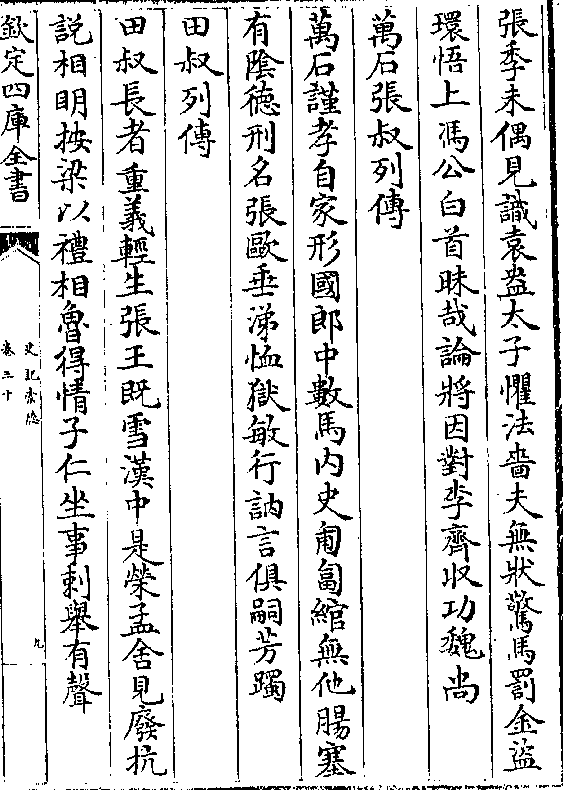 張季未偶見識袁盎太子懼法嗇夫無狀驚馬罰金盜
環悟上馮公白首昧哉論將因對李齊收功魏尚
萬石張叔列傳
萬石謹孝自家形國郎中數馬内史匍匐綰無他腸塞
有陰徳刑名張歐垂涕恤獄敏行訥言俱嗣芳躅
田叔列傳
田叔長者重義輕生張王既雪漢中是榮孟舎見廢抗
説相明按梁以禮相魯得情子仁坐事刺舉有聲
欽定四庫全書
史記索隠
卷三十
九